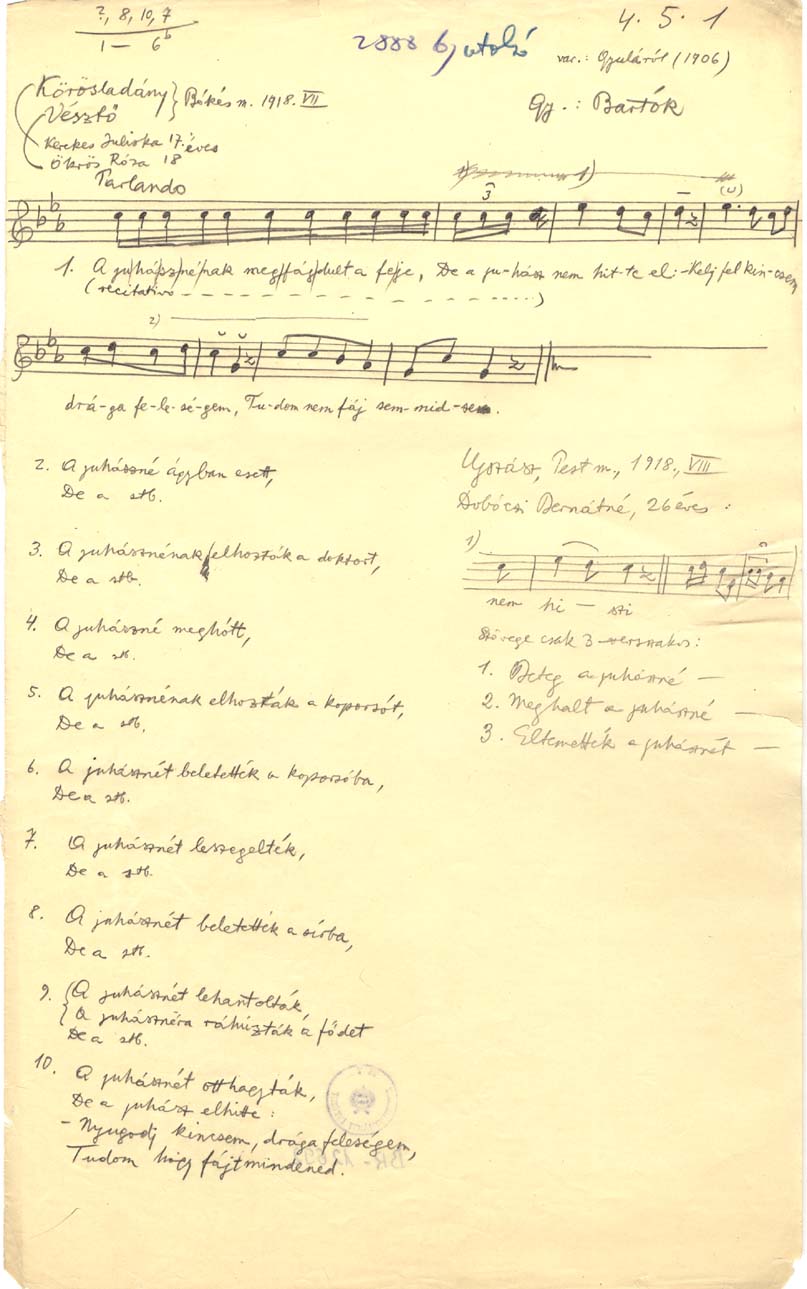 ?, 8, 10, 7
1 – 6b
4. 5. 1
2888 b) utolsó
var.: Gyuláról (1906)
Körösladány
Vésztő } Békés m. 1918. VII
Gy.: Bartók
Kerekes Juliska 17 éves
Ökrös Róza 18
Parlando
1)
3
(u)
1. A juhásznénak megfájdult a feje, De a ju-hász nem hit-te el: -Kelj fel kin-csem
(recitativo – – – – – – – – – – ....)
2)
drá-ga fe-le-sé-gem, Tu-dom nem fáj sem-mid-sem.
2. A juhászné ágyban esett,
De a stb.
3. A juhásznénak felhozták a doktort,
De a stb.
4. A juhászné meghótt,
De a stb.
5. A juhásznénak elhozták a koporsót,
De a stb.
6. A juhásznét beletették a koporsóba,
De a stb.
7. A juhásznét leszegelték,
De a stb.
8. A juhásznét beletették a sírba,
De a stb.
9. (A juhásznét lehantolták,
A juhásznéra ráhúzták a fődet
De a stb.
10. A juhásznét otthagyták,
De a juhász elhitte:
– Nyugodj kincsem, drága feleségem,
Tudom hogy fájt mindened.
Ujszász, Pest m., 1918., VIII
Dobóczi Bernátné, 26 éves:
1)
nem hi – szi
Szövege csak 3 versszakos:
1. Beteg a juhászné —
2. Meghalt a juhászné —
3. Eltemették a juhásznét —